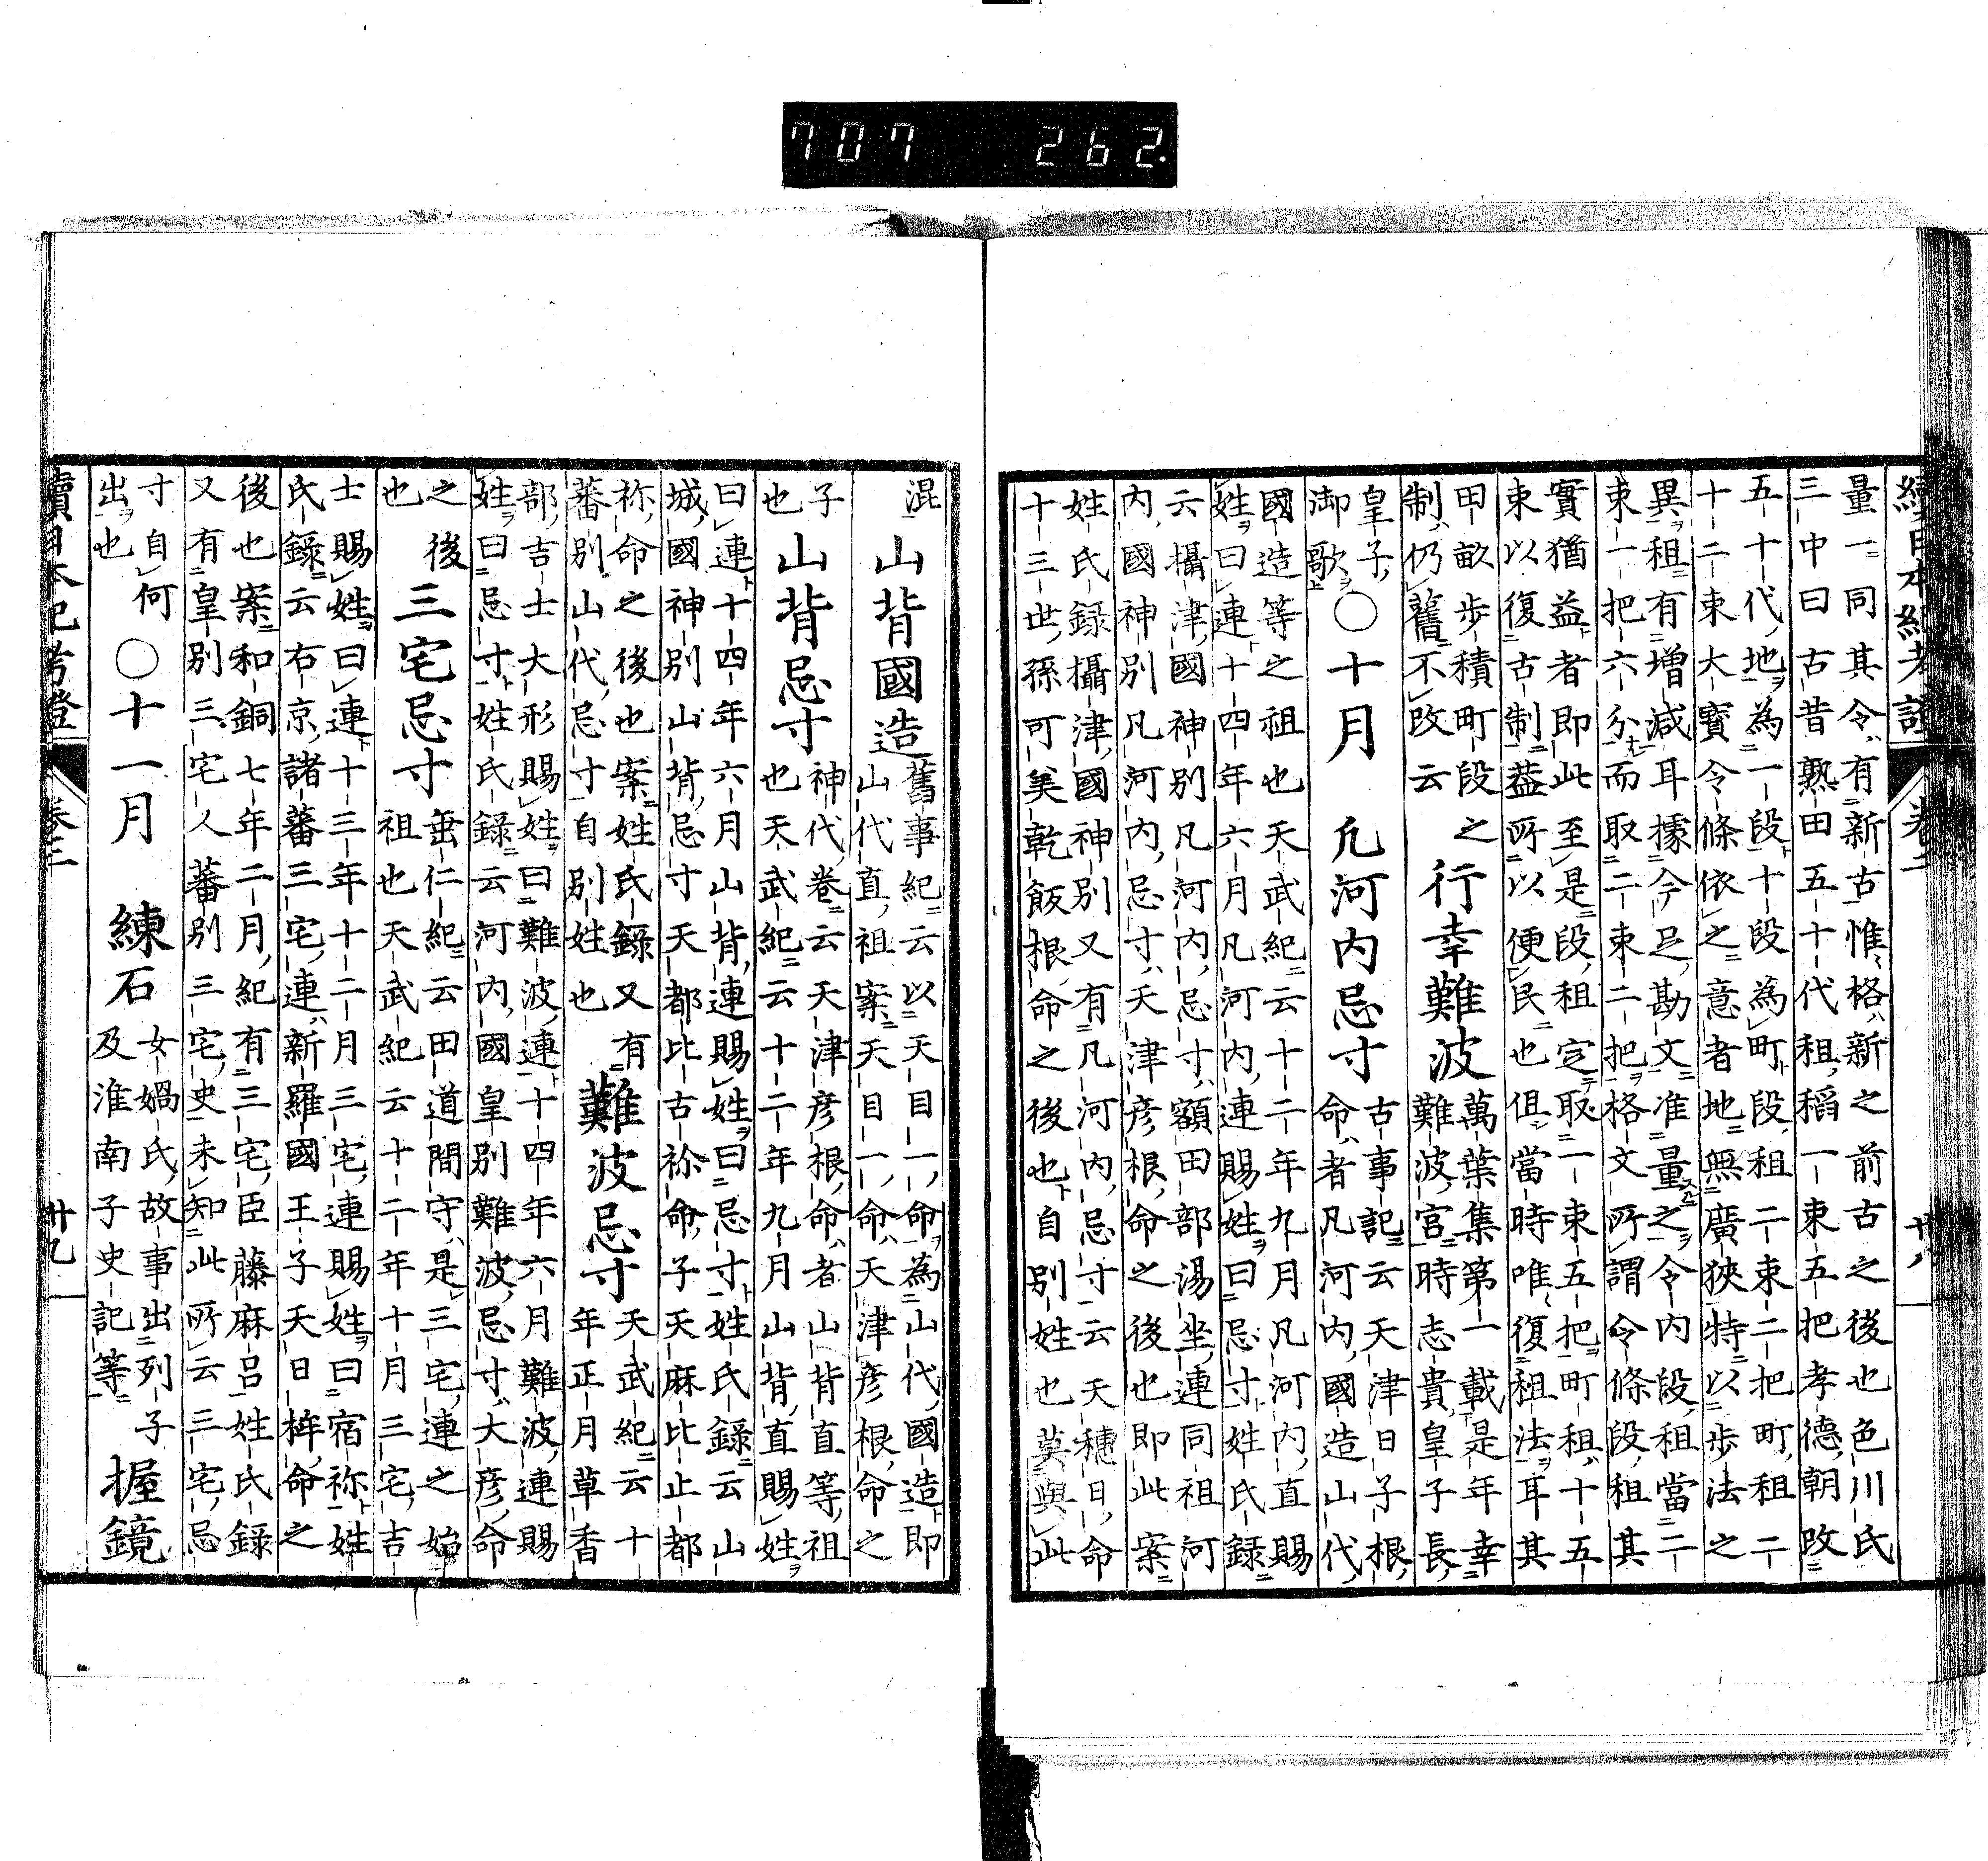 707 262.
續日本紀考證 卷三 廿八
量一同其令有新古惟格新之前古之後也色川氏
三中曰古昔熟田五十代租稻一束五把孝德朝改
五十代地為一段十段為町段租二束二把町租二
十二束大寶令條依之意者地無廣狹特以步法之
異租有增減耳據今足勘文准量之令內段租當二
束一把六分而取二束二把格文所謂令條段租其
實猶益者即此至是段租定取一束五把町租十五
束以復古制蓋所以便民也但當時唯復租法耳其
田畝步積町段之
制仍舊不改云
行幸難波
萬葉集第一載是年幸
難波宮時志貴皇子長
皇子
御歌
○十月
凡河內忌寸
古事記云天津日子根
命者凡河內國造山代
國造等之祖也天武紀云十二年九月凡河內直賜
姓曰連十四年六月凡河內連賜姓曰忌寸姓氏錄
云攝津國神別凡河內忌寸額田部湯坐連同祖河
內國神別凡河內忌寸天津彥根命之後也即此案
姓氏錄攝津國神別又有凡河內忌寸云天穗日命
十三世孫可美乾飯根命之後也自別姓也莫與此
混
山背國造
舊事紀云以天目一命為山代國造即
山代直祖案天目一命天津彥根命之
子
也
山背忌寸
神代卷云天津彥根命者山背直等祖
也天武紀云十二年九月山背直賜姓
曰連十四年六月山背連賜姓曰忌寸姓氏錄云山
城國神別山背忌寸天都比古祢命子天麻比止都
祢命之後也案姓氏錄又有
蕃別山代忌寸自別姓也
難波忌寸
天武紀云十
年正月草香
部吉士大形賜姓曰難波連十四年六月難波連賜
姓曰忌寸姓氏錄云河內國皇別難波忌寸大彥命
之後
也
三宅忌寸
垂仁紀云田道間守是三宅連之始
祖也天武紀云十二年十月三宅吉
士賜姓曰連十三年十二月三宅連賜姓曰宿祢姓
氏錄云右京諸蕃三宅連新羅國王子天日桙命之
後也案和銅七年二月紀有三宅臣藤麻呂姓氏錄
又有皇別三宅人蕃別三宅史未知此所云三宅忌
寸自何
出也
○十一月
練石
女媧氏故事出列子
及淮南子史記等
握鏡
續日本紀考證 卷三 廿九